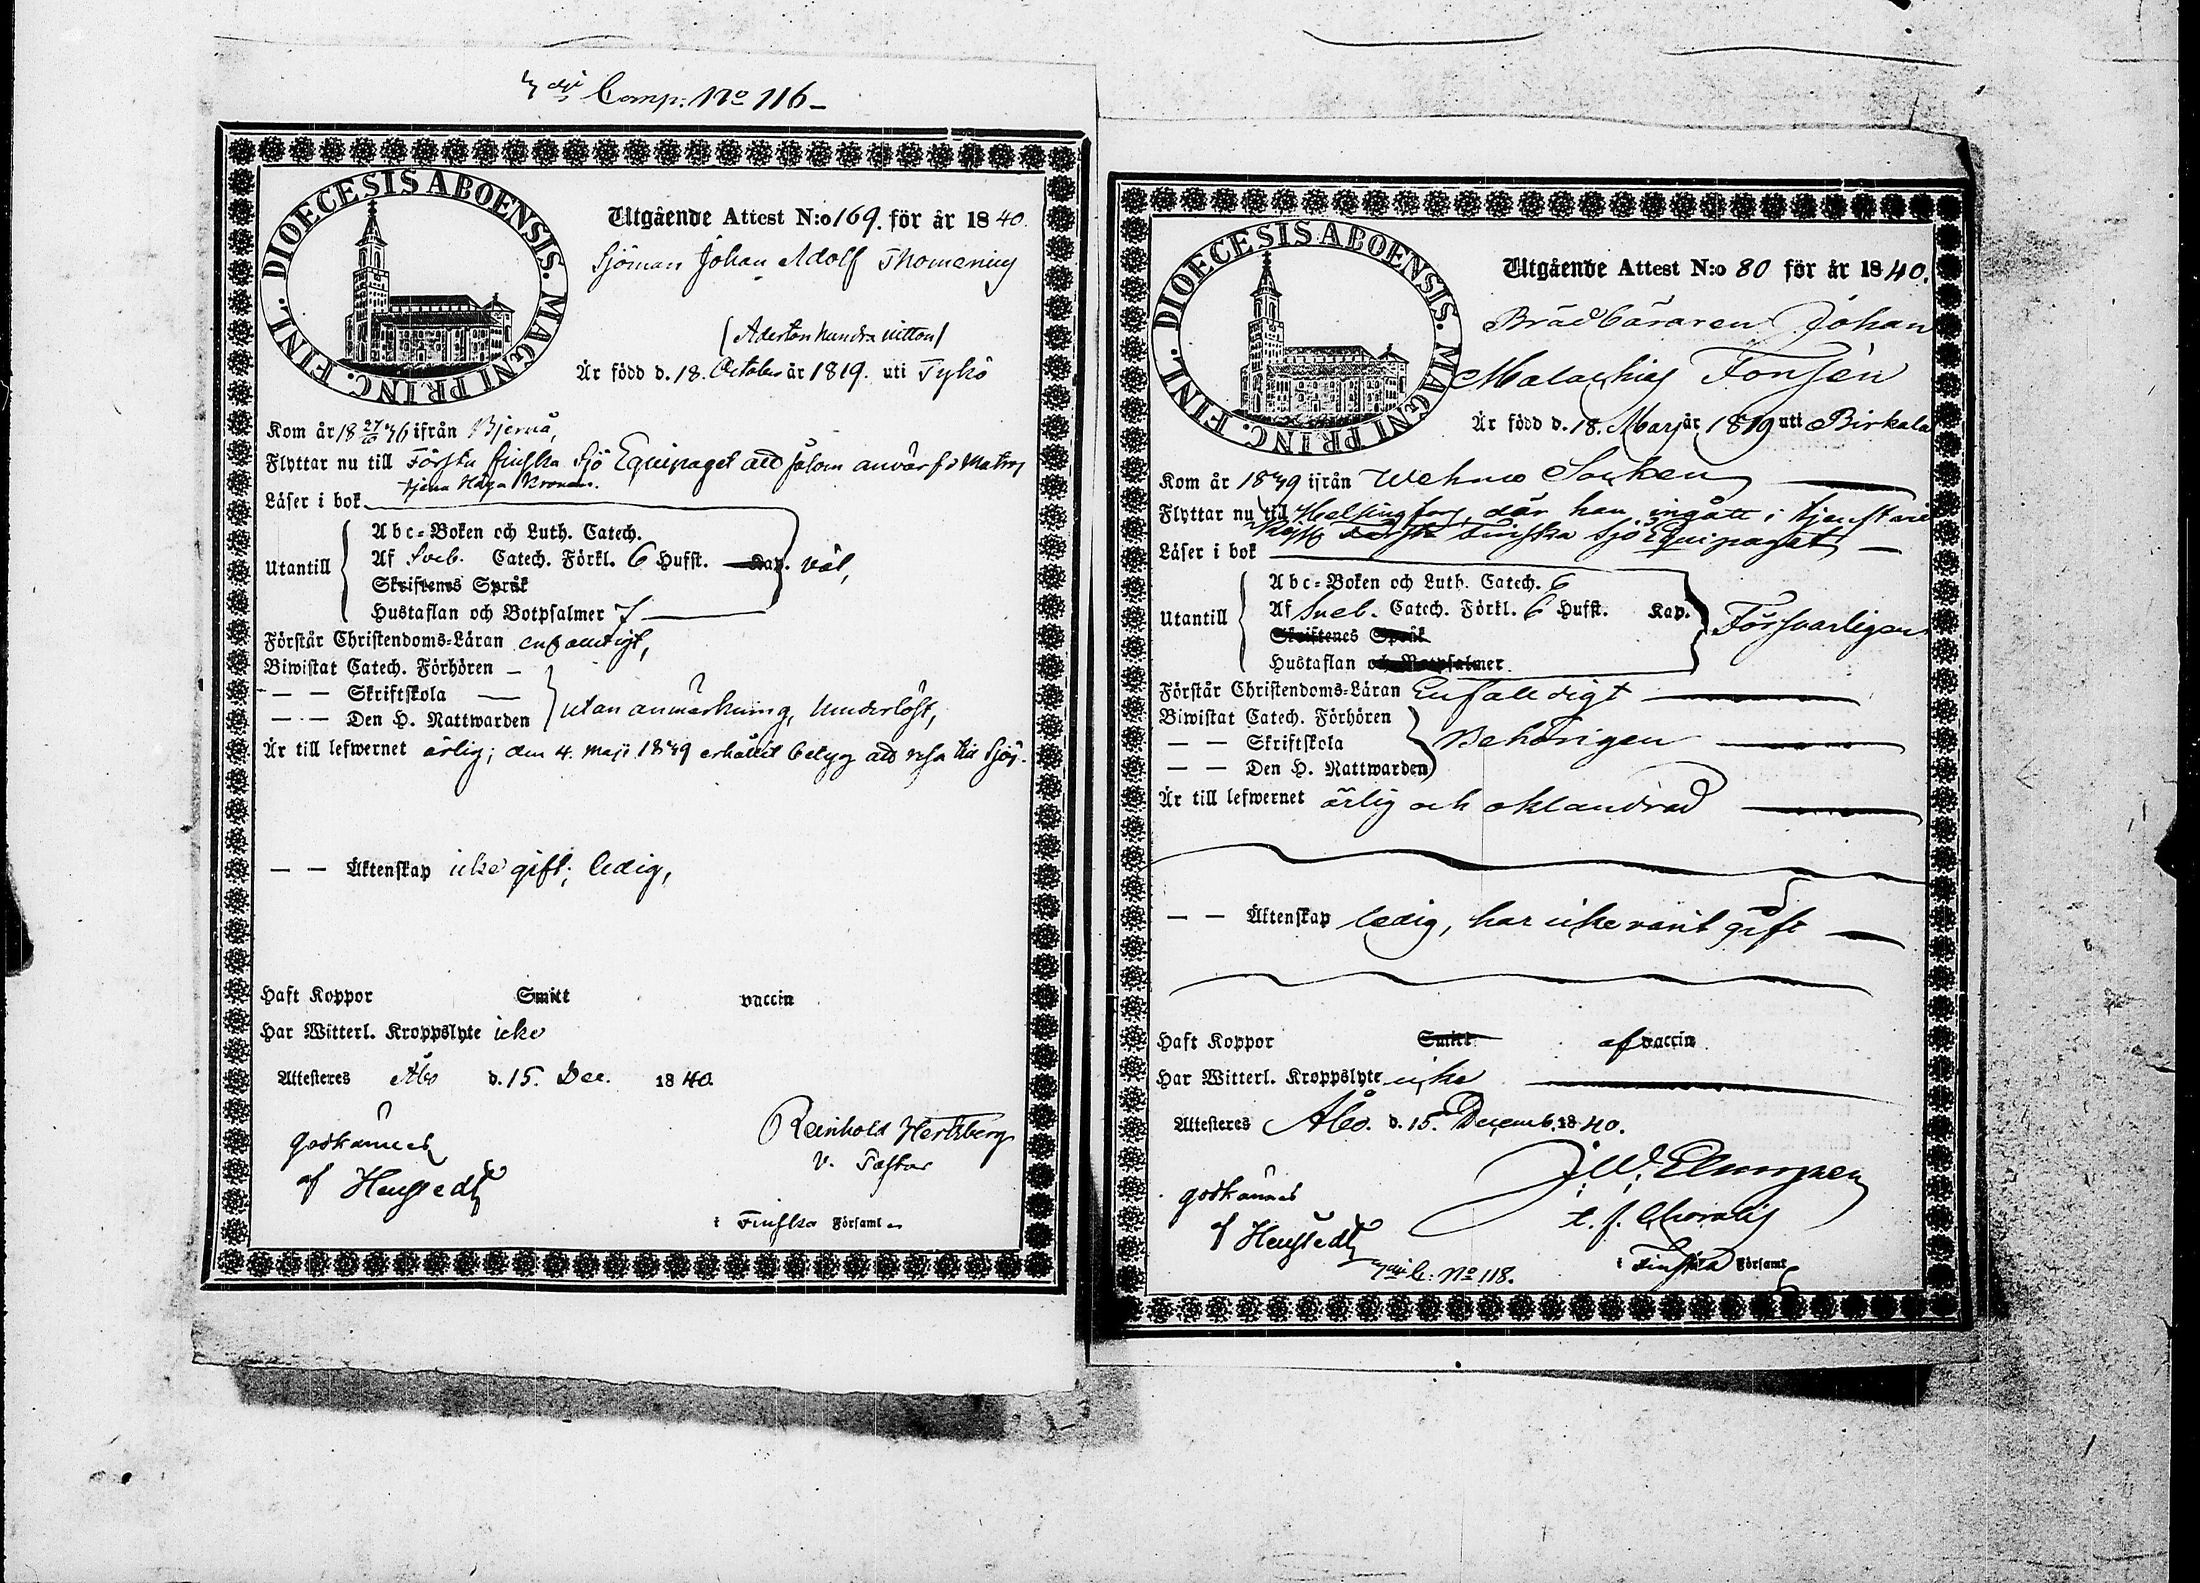 Comp: No 116
DIOECESIS ABOENSIS. MAGNI PRINC. FINL.
Utgående Attest N:o 169. för år 1840.
Sjöman Johan Adolf Thomenius
(Adertonhundra nitton)
Är född d. 18. October år 1819. uti Tykö
Kom år 18 27/10 36 ifrån Bjerno,
Flyttar nu till Första finska Sjö Equipaget att såsom anvärfd Matros
tjena Höga Kronan.
Läser i bok
Abc-Boken och Luth. Catech.
Utantill Af Sveb. Catech. Förkl. 6 Hufst. Kap. väl,
Skriftenes Språk
Hustaflan och Botpsalmer 7
Förstår Christendoms-Läran enfaldigt,
Biwistat Catech. Förhören
— — Skriftskola
— — Den H. Nattwarden utan anmärkning,
Är till lefwernet ärlig; den 4. Maji 1839 erhållit betyg att resa till sjös.
— — Äktenskap icke gift; ledig,
Haft Koppor Smitt vaccin
Har Witterl. Kroppslyte icke
Attesteres Åbo d. 15. Dec. 1840.
Godkännes
af Heugstedt
Reinhold Hertzberg
v. Pastor
i Finska Församl.
DIOECESIS ABOENSIS. MAGNI PRINC. FINL.
Utgående Attest N:o 80 för år 1840.
Brädbäraren Johan
Malachias Forsén
Är född d. 18. Mars år 1819 uti Birkala
Kom år 1839 ifrån Wehmo Socken
Flyttar nu till Helsingfors, där han ingått i tjenst vid
Första Finska Sjö Equipaget
Läser i bok
Abc-Boken och Luth. Catech. 6
Utantill Af Sveb. Catech. Förkl. 6 Hufst. Kap. Försvarligen
Skriftenes Språk
Hustaflan och Botpsalmer
Förstår Christendoms-Läran Enfalldigt
Biwistat Catech. Förhören
— — Skriftskola Behörigen
— — Den H. Nattwarden
Är till lefwernet ärlig och oklandrad
— — Äktenskap ledig, har icke varit gift
Haft Koppor Smitt af vaccin
Har Witterl. Kroppslyte icke
Attesteres Åbo. d. 15. Decemb. 1840.
Godkännes
af Heugstedt
t. f. Choralis
i Finska Församl.
C: No 118.